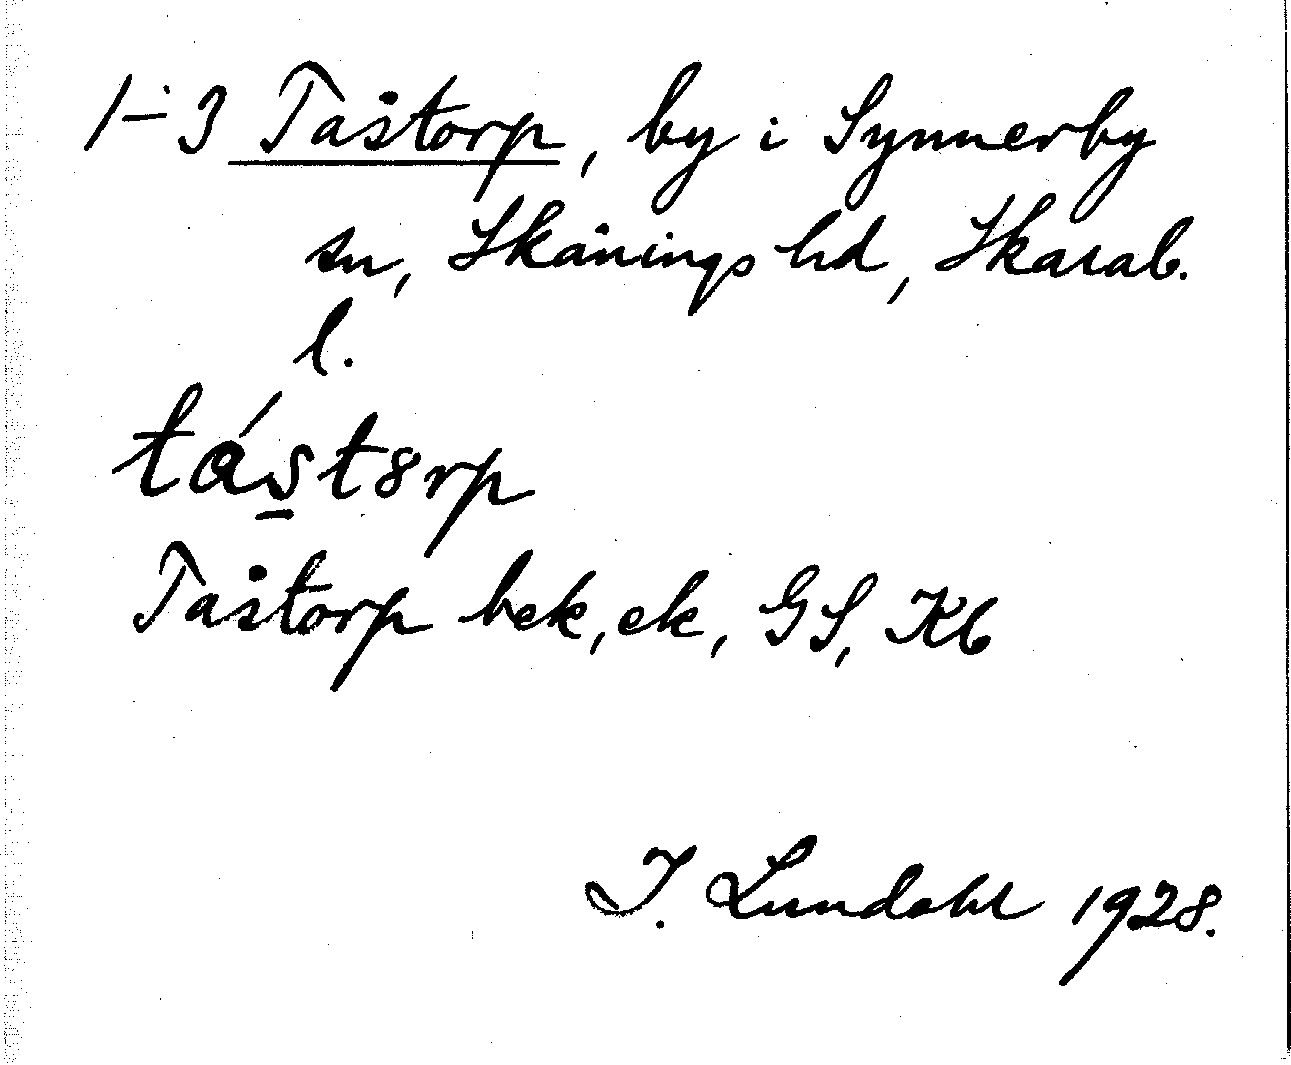 1-3 Tåstorp, by i Synnerby
sn, Skånings hd, Skarab.
l.
Tåstorp bek, ek, GS, Kb
I. Lundahl 1928.